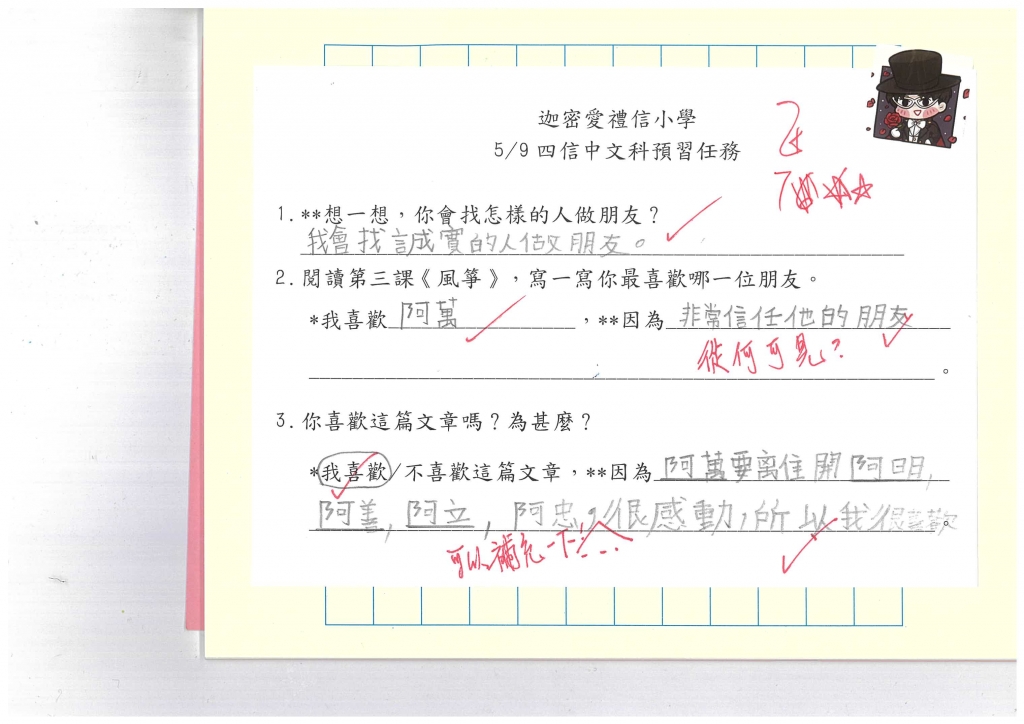 迦密愛禮信小學
5/9 四信中文科預習任務
1. **想一想，你會找怎樣的人做朋友？
我會找誠實的人做朋友。
2. 閱讀第三課《風箏》，寫一寫你最喜歡哪一位朋友。
*我喜歡 阿萬 ，**因為 非常信任他的朋友
從何可見？
。
3. 你喜歡這篇文章嗎？為甚麼？
*我喜歡/不喜歡這篇文章，**因為 阿萬要离住開阿明,
阿善, 阿立, 阿忠,很感動,所以我很喜歡。
可以補充一下!